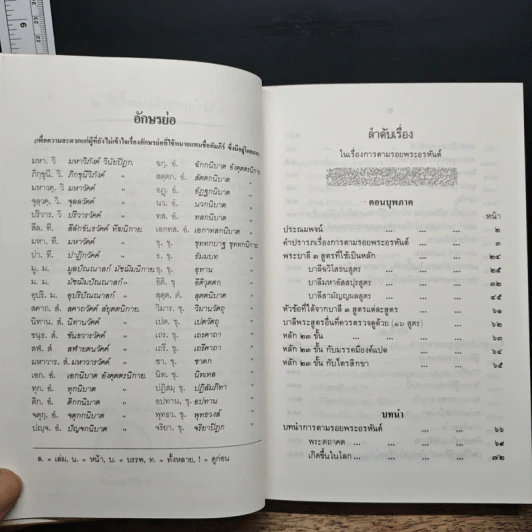 6
อักษรย่อ
(เพื่อความสะดวกแก่ผู้ที่ยังไม่เข้าใจเรื่องอักษรย่อที่ใช้หมายแทนชื่อคัมภีร์ ซึ่งมีอยู่โดยมาก)
มหา. วิ มหาวิภังค์ วินัยปิฎก
ภิกฺขุนี. วิ. ภิกขุนีวิภังค์ "
มหาวคฺ. วิ มหาวัคค์ "
จุลฺลวคฺ. วิ. จุลลวัคค์ "
ปริวาร. วิ ปริวารวัคค์ "
สีล. ที. สีลักขันธวัคค์ ทีฆนิกาย.
มหา. ที. มหาวัคค์ "
ปา. ที. ปาฏิกวัคค์ "
มู. ม. มูลปัณณาสก์ มัชฌิมนิกาย.
ม. ม. มัชฌิมปัณณาสก์ "
อุปริ. ม. อุปริปัณณาสก์ "
สคาถ. สํ. สคาถวัคค์ สังยุตตนิกาย.
นิทาน. สํ. นิทานวัคค์ "
ขนฺธ. สํ. ขันธวารวัคค์ "
สฬ. สํ สฬายตนวัคค์ "
มหาวาร. สํ. มหาวารวัคค์ "
เอก. อํ. เอกนิบาต อังคุตตรนิกาย.
ทุก. อํ. ทุกนิบาต "
ติก. อํ. ติกกนิบาต "
จตุกฺ. อํ. จตุกกนิบาต "
ปญฺจ. อํ. ปัญจกนิบาต "
ฉกฺ. อํ. ฉักกนิบาต อังคุตตรนิกาย
สตฺตก. อํ. สัตตกนิบาต "
อฏฺ. อํ. อัฏฐกนิบาต "
นว. อํ. นวกนิบาต "
ทส. อํ. ทสกนิบาต "
เอกาทส. อํ. เอกาทสกนิบาต "
ขุ. ขุ. ขุททกปาฐ ขุททกนิกาย
ธ. ขุ. ธัมมบท "
อุ. ขุ. อุทาน "
อิติ. ขุ อิติวุตตก "
สุตฺต. ขุ. สุตตนิบาต "
วิมาน. ขุ. วิมานวัตถุ "
เปต. ขุ. เปตวัตถุ "
เถร. ขุ. เถรคาถา "
เถรี. ขุ. เถรีคาถา "
ชา. ขุ. ชาดก "
นิท. ขุ. นิทเทส "
ปฏิสมฺ ขุ. ปฏิสัมภิทา "
อปทาน. ขุ. อปทาน "
พุทธว. ขุ. พุทธวงส์ "
จริยา. ขุ. จริยาปิฎก "
ล. = เล่ม, น. = หน้า, บ. = บรรพ, ท. = ทั้งหลาย, ! = ดูก่อน
ลำดับเรื่อง
ในเรื่องการตามรอยพระอรหันต์
ตอนบุพภาค
หน้า
ประณมพจน์ ... ... ... ๒
คำปรารภเรื่องการตามรอยพระอรหันต์ ... ... ๓
พระบาลี ๓ สูตรที่ใช้เป็นหลัก ... ... ๒๔
บาลีจูวิโสธนสูตร ... ... ๒๕
บาลีมหาอัสสปุรสูตร ... ... ๓๒
บาลีสามัญญผลสูตร ... ... ๔๕
หัวข้อที่ได้จากบาลี ๓ สูตรแต่ละสูตร ... ...
บาลีพระสูตรอื่นที่ควรตรวจดูด้วย (๑๖ สูตร) ...
หลัก ๒๓ ขั้น ... ... ...
หลัก ๒๓ ขั้น กับมรรคมีองค์แปด ... ... ๖๔
หลัก ๒๓ ขั้น กับไตรสิกขา ... ... ๖๕
บทนำ
บทนำการตามรอยพระอรหันต์ ... ... ๖๖
พระตถาคต ... ... ... ๖๙
เกิดขึ้นในโลก ... ... ... ๗๒